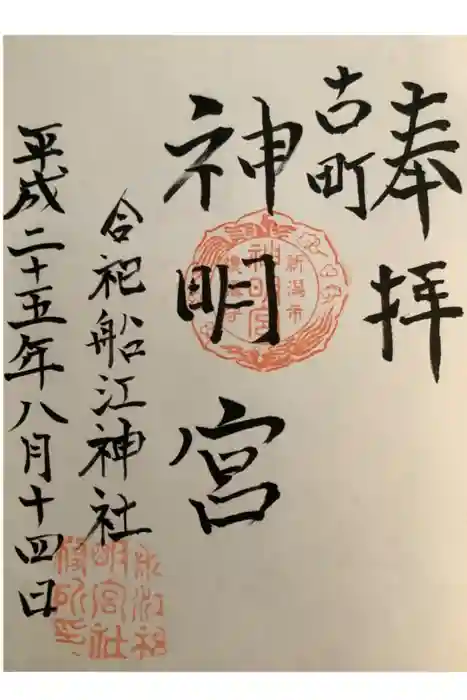 奉拝
古町
神明宮
合祀船江神社
平成二十五年八月十四日
新潟市
神明宮